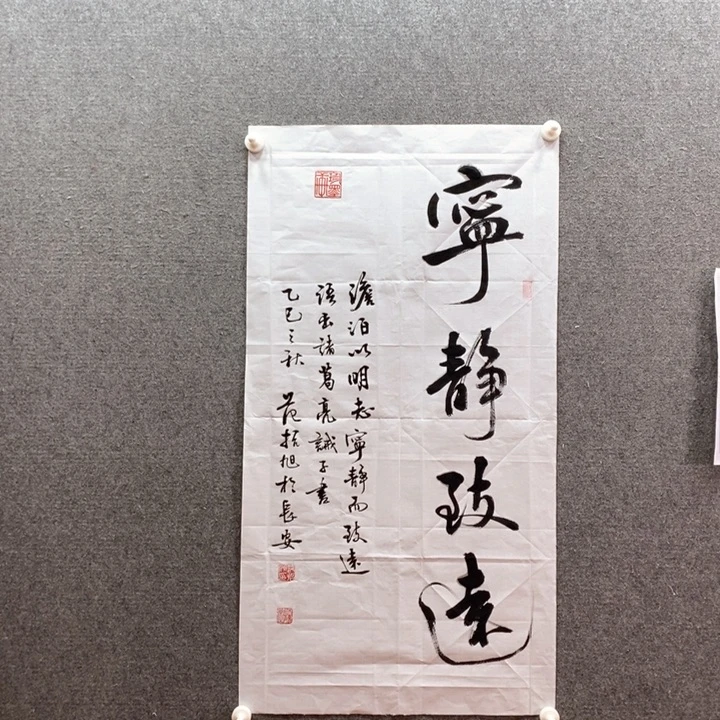 寧靜致遠
澹泊以明志寧靜而致遠
语出諸葛亮誡子書
乙巳之秋 范括旭於長安